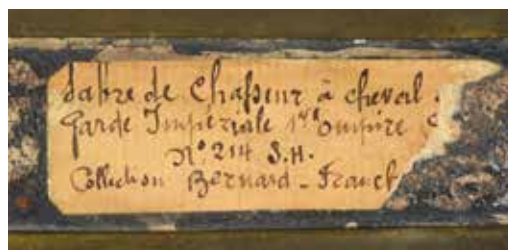 Sabre de Chasseur à cheval
Garde Impériale 1er Empire
N° 214 S.H.
Collection Bernard - Franck